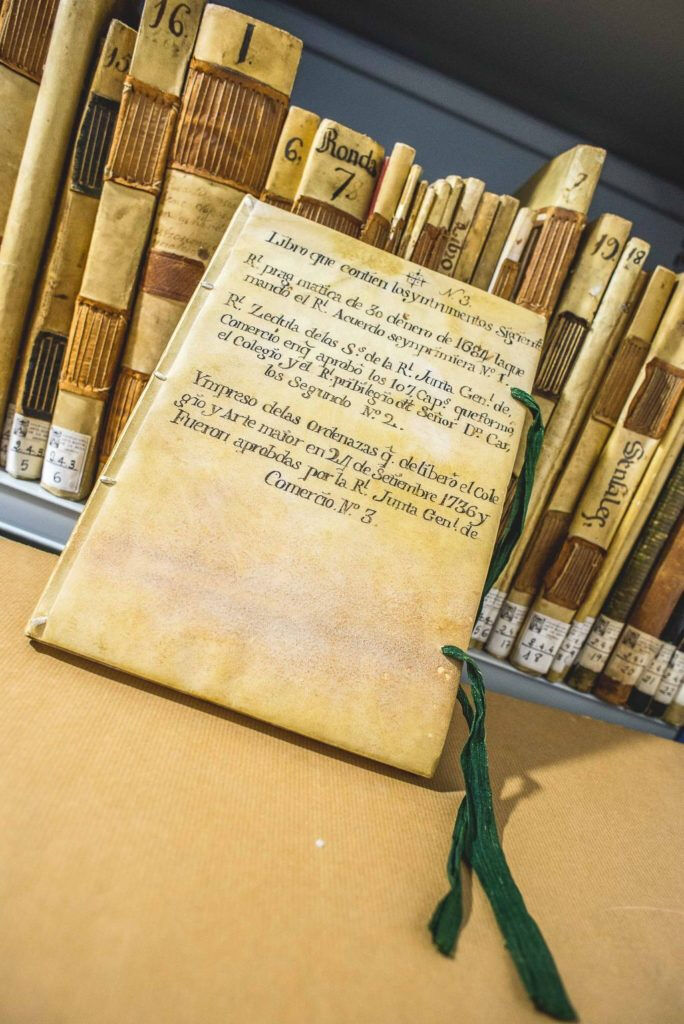 16
1
15
6.
Ronda
7.
7
19.
18.
N 3.
Libro que contien los yntrumentos Sigiente
Rl. pragmatica de 30 de nero de 1684 laque
mandó el Rl. Acuerdo se ynprimiera No. 1.
Rl. Zedula de las Ss. de la Rl. Junta Genl. de
Comercio enq̃ aprobó los 107 Caps. que formó
el Colegio y el Rl. pribilegio del Señor Dn. Car,
los Segundo No. 2.
Ympreso de las Ordenazas q̃ de libero el Cole
gio y Arte maior en 24 de Setiembre 1736 y
Fueron aprobdas por la Rl. Junta Genl. de
Comercio. No. 3.
5
2.4.3.
6
18